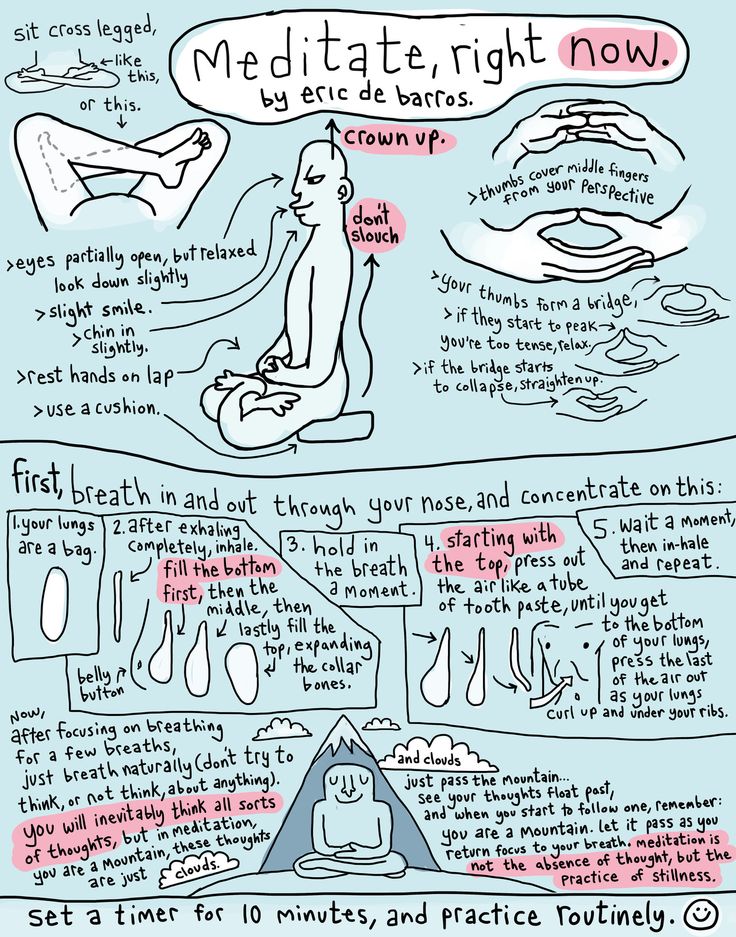 sit cross legged,
like
this,
or this.
Meditate, right now.
by eric de barros.
crown up.
don't
slouch
>eyes partially open, but relaxed
look down slightly
>slight smile.
>chin in
slightly.
>rest hands on lap
>use a cushion.
>thumbs cover middle fingers
from your perspective
>your thumbs form a bridge,
>if they start to peak
you're too tense, relax.
>if the bridge starts
to collapse, straighten up.
first, breath in and out through your nose, and concentrate on this:
1. your lungs
are a bag.
2. after exhaling
completely, inhale.
fill the bottom
first, then the
middle, then
lastly fill the
top, expanding
the collar
bones.
belly
button
3. hold in
the breath
a moment.
4. starting with
the top, press out
the air like a tube
of tooth paste, until you get
to the bottom
of your lungs,
press the last
of the air out
as your lungs
curl up and under your ribs.
5. wait a moment,
then in-hale
and repeat.
Now,
after focusing on breathing
for a few breaths,
just breath naturally (don't try to
think, or not think, about anything).
you will inevitably think all sorts
of thoughts, but in meditation,
you are a mountain, these thoughts
are just clouds.
and clouds
just pass the mountain...
see your thoughts float past,
and when you start to follow one, remember:
you are a mountain. let it pass as you
return focus to your breath. meditation is
not the absence of thought, but the
practice of stillness.
set a timer for 10 minutes, and practice routinely.